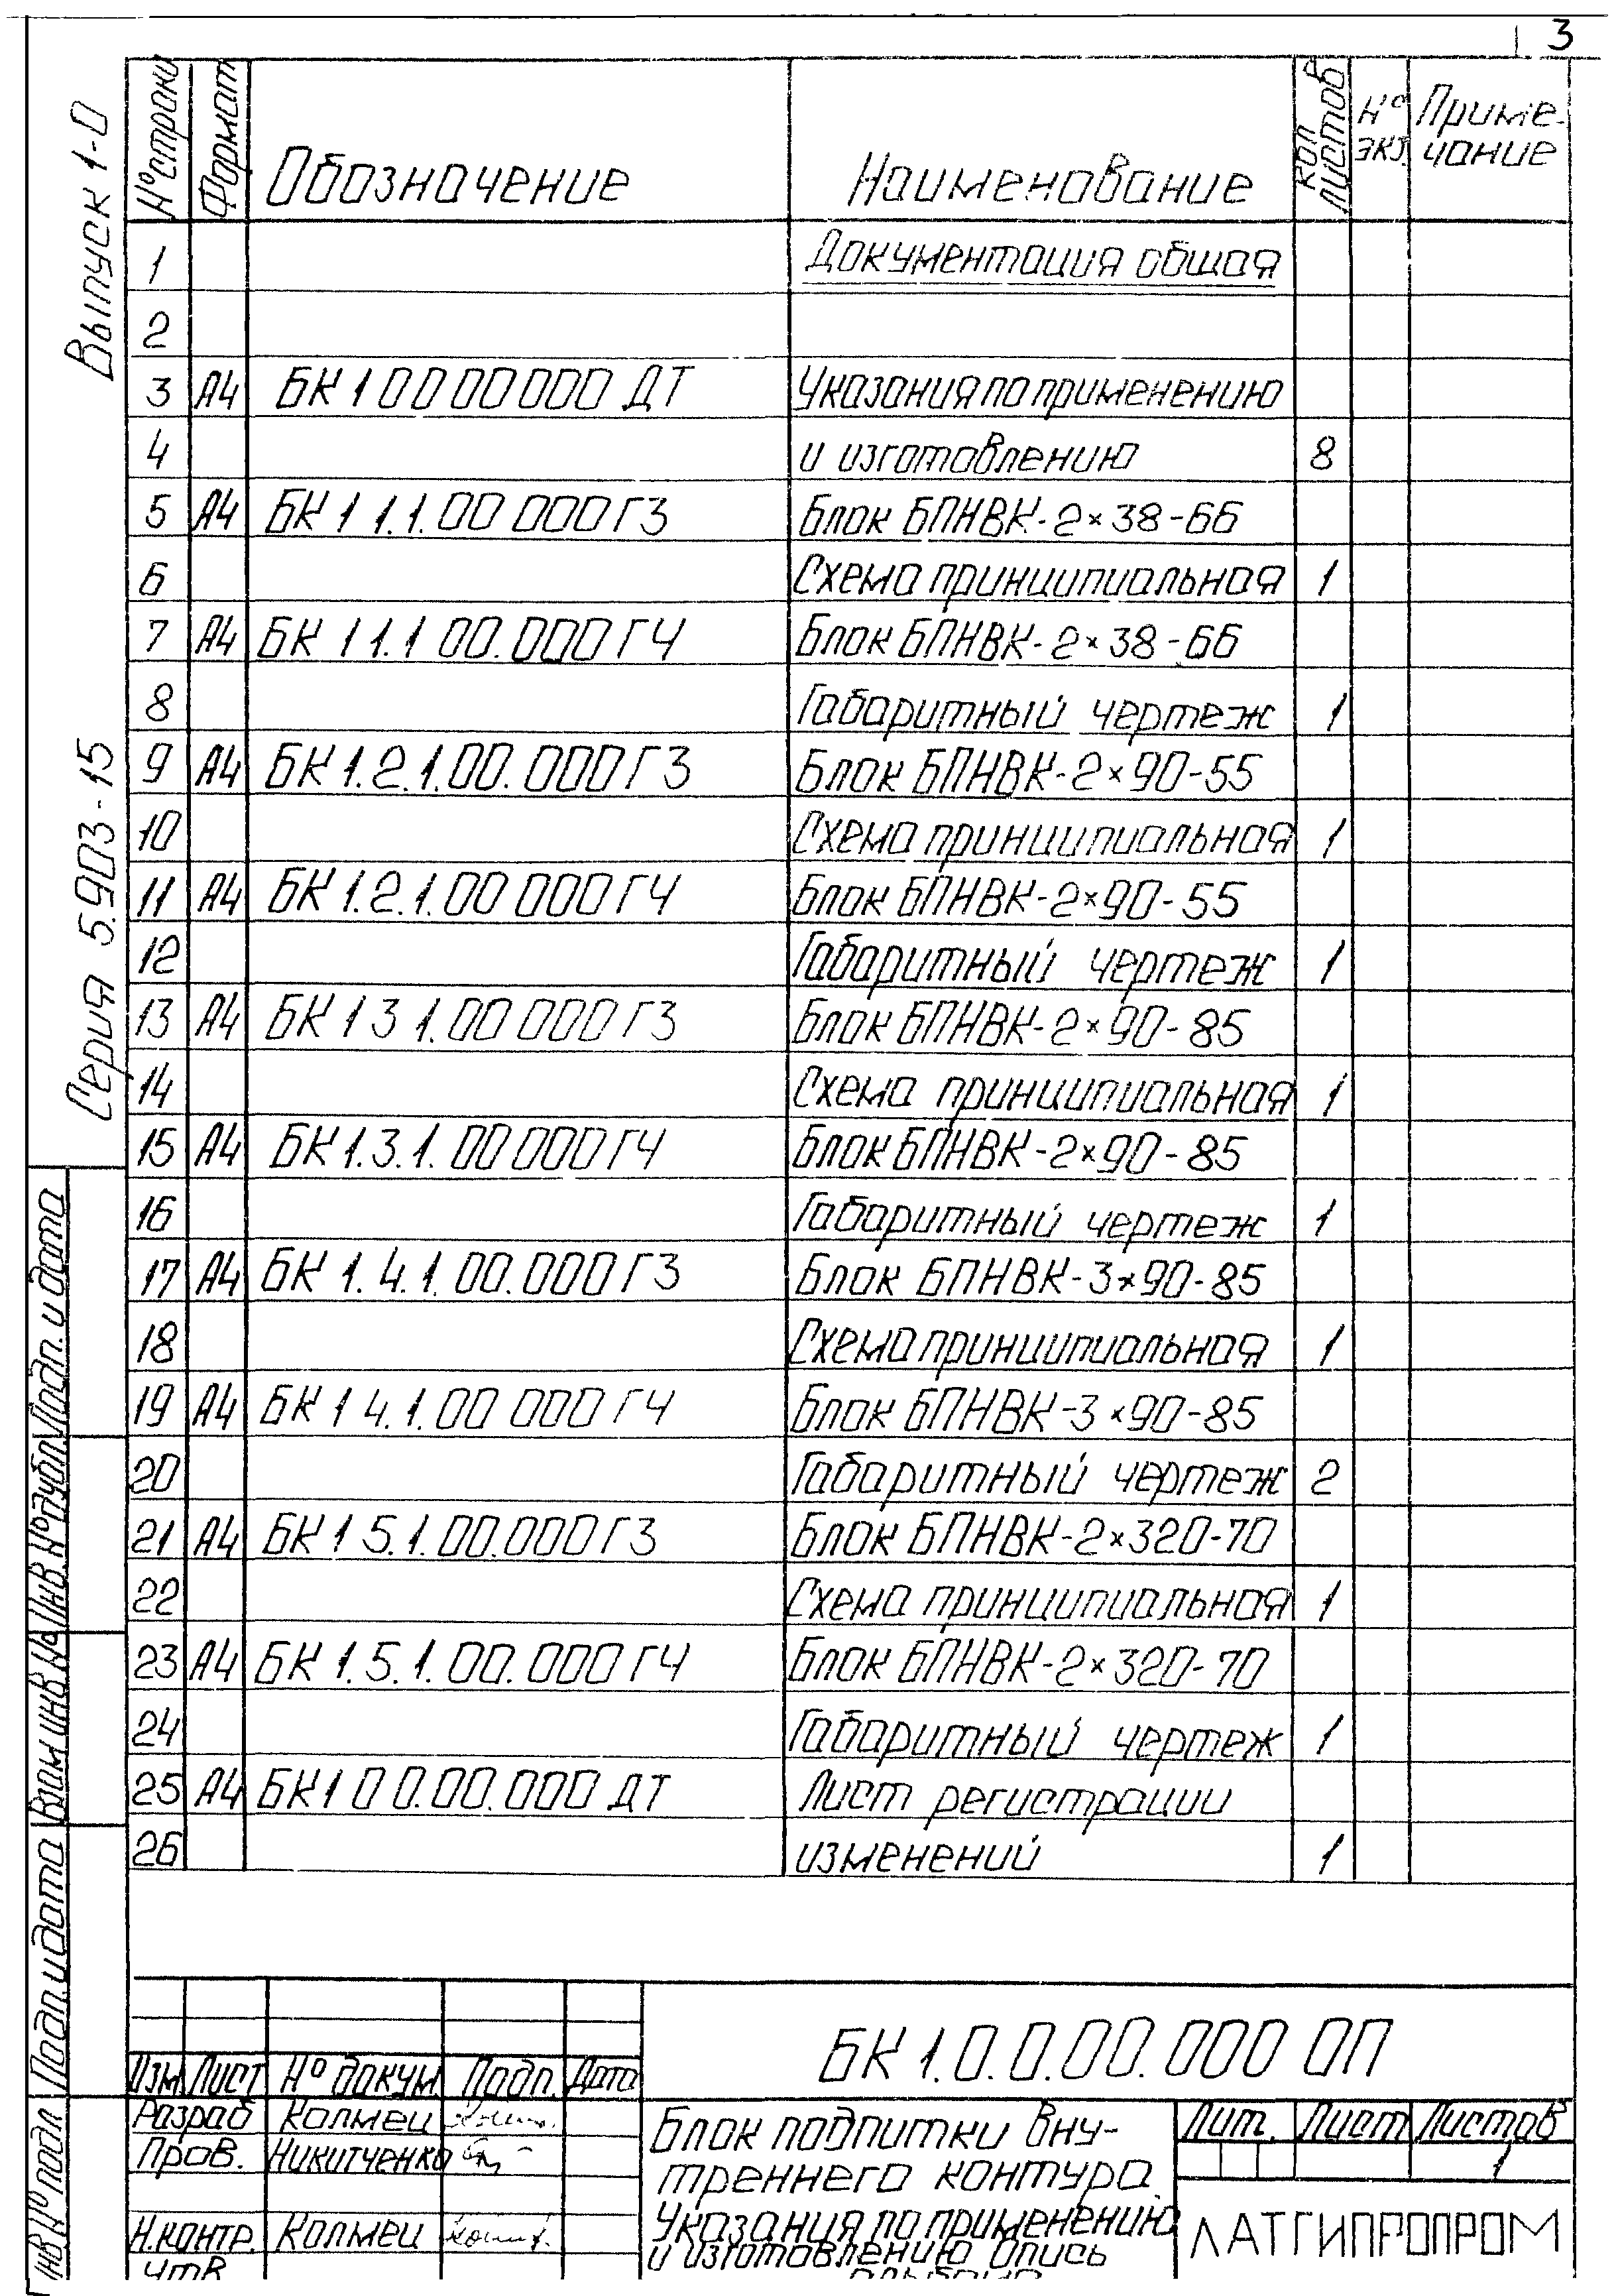 3
Серия 5.903-15 Выпуск 1-0
№ строки Формат Обозначение Наименование Кол листов № экз. Приме-
чание
1 Документация общая
2
3 А4 БК 1 0 0 00 000 ДТ Указания по применению
4 и изготовлению 8
5 А4 БК 1 1.1.00 000 ГЗ Блок БПНВК-2×38-66
6 Схема принципиальная 1
7 А4 БК 1 1.1 00.000 ГЧ Блок БПНВК-2×38-66
8 Габаритный чертеж 1
9 А4 БК 1.2.1.00.000 ГЗ Блок БПНВК-2×90-55
10 Схема принципиальная 1
11 А4 БК 1.2.1.00 000 ГЧ Блок БПНВК-2×90-55
12 Габаритный чертеж 1
13 А4 БК 1 3 1.00 000 ГЗ Блок БПНВК-2×90-85
14 Схема принципиальная 1
15 А4 БК 1.3.1.00 000 ГЧ Блок БПНВК-2×90-85
16 Габаритный чертеж 1
17 А4 БК 1.4.1.00.000 ГЗ Блок БПНВК-3×90-85
18 Схема принципиальная 1
19 А4 БК 1 4.1.00 000 ГЧ Блок БПНВК-3×90-85
20 Габаритный чертеж 2
21 А4 БК 1 5.1.00.000 ГЗ Блок БПНВК-2×320-70
22 Схема принципиальная 1
23 А4 БК 1.5.1.00.000 ГЧ Блок БПНВК-2×320-70
24 Габаритный чертеж 1
25 А4 БК 1 0 0.00.000 ДТ Лист регистрации
26 изменений 1
Инв № подл Подп. и дата Взам инв № Инв. № дубл. Подп. и дата
БК 1.0.0.00.000 ОП
Изм Лист № докум Подп. Дата
Разраб Колмец
Пров. Никитченко
Н.контр. Колмец
Утв
Блок подпитки вну-
треннего контура.
Указания по применению
и изготовлению Опись
альбома
Лит. Лист Листов
1
ЛАТГИПРОПРОМ